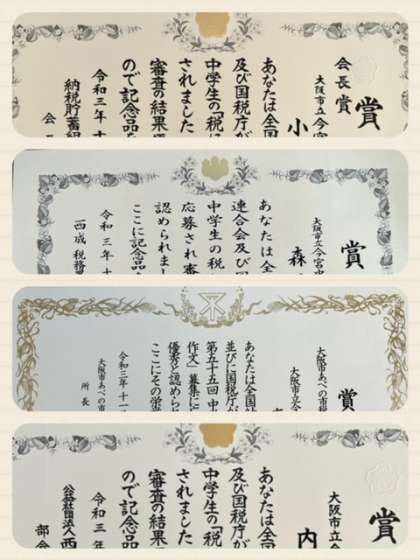 賞
会長賞
大阪市立今宮
小
あなたは全国
及び国税庁が
中学生の「税に
されました
審査の結果
ので記念品を
令和三年十
納税貯蓄組
会
賞
大阪市立今宮中
森
あなたは全
連合会及び国
中学生の税
応募され審
認められまし
ここに記念品
令和三年十
西成税務署
賞
大阪市あべの市税
大阪市立今
あなたは全国
並びに国税庁が
第五十五回中
作文」募集に
優秀と認めら
ここにその栄
令和三年十一
大阪市あべの市
所長
賞
大阪市立
内
あなたは全国
及び国税庁が
中学生の「税
されました
審査の結果
ので記念品
令和三年
公益社団法人西
部会